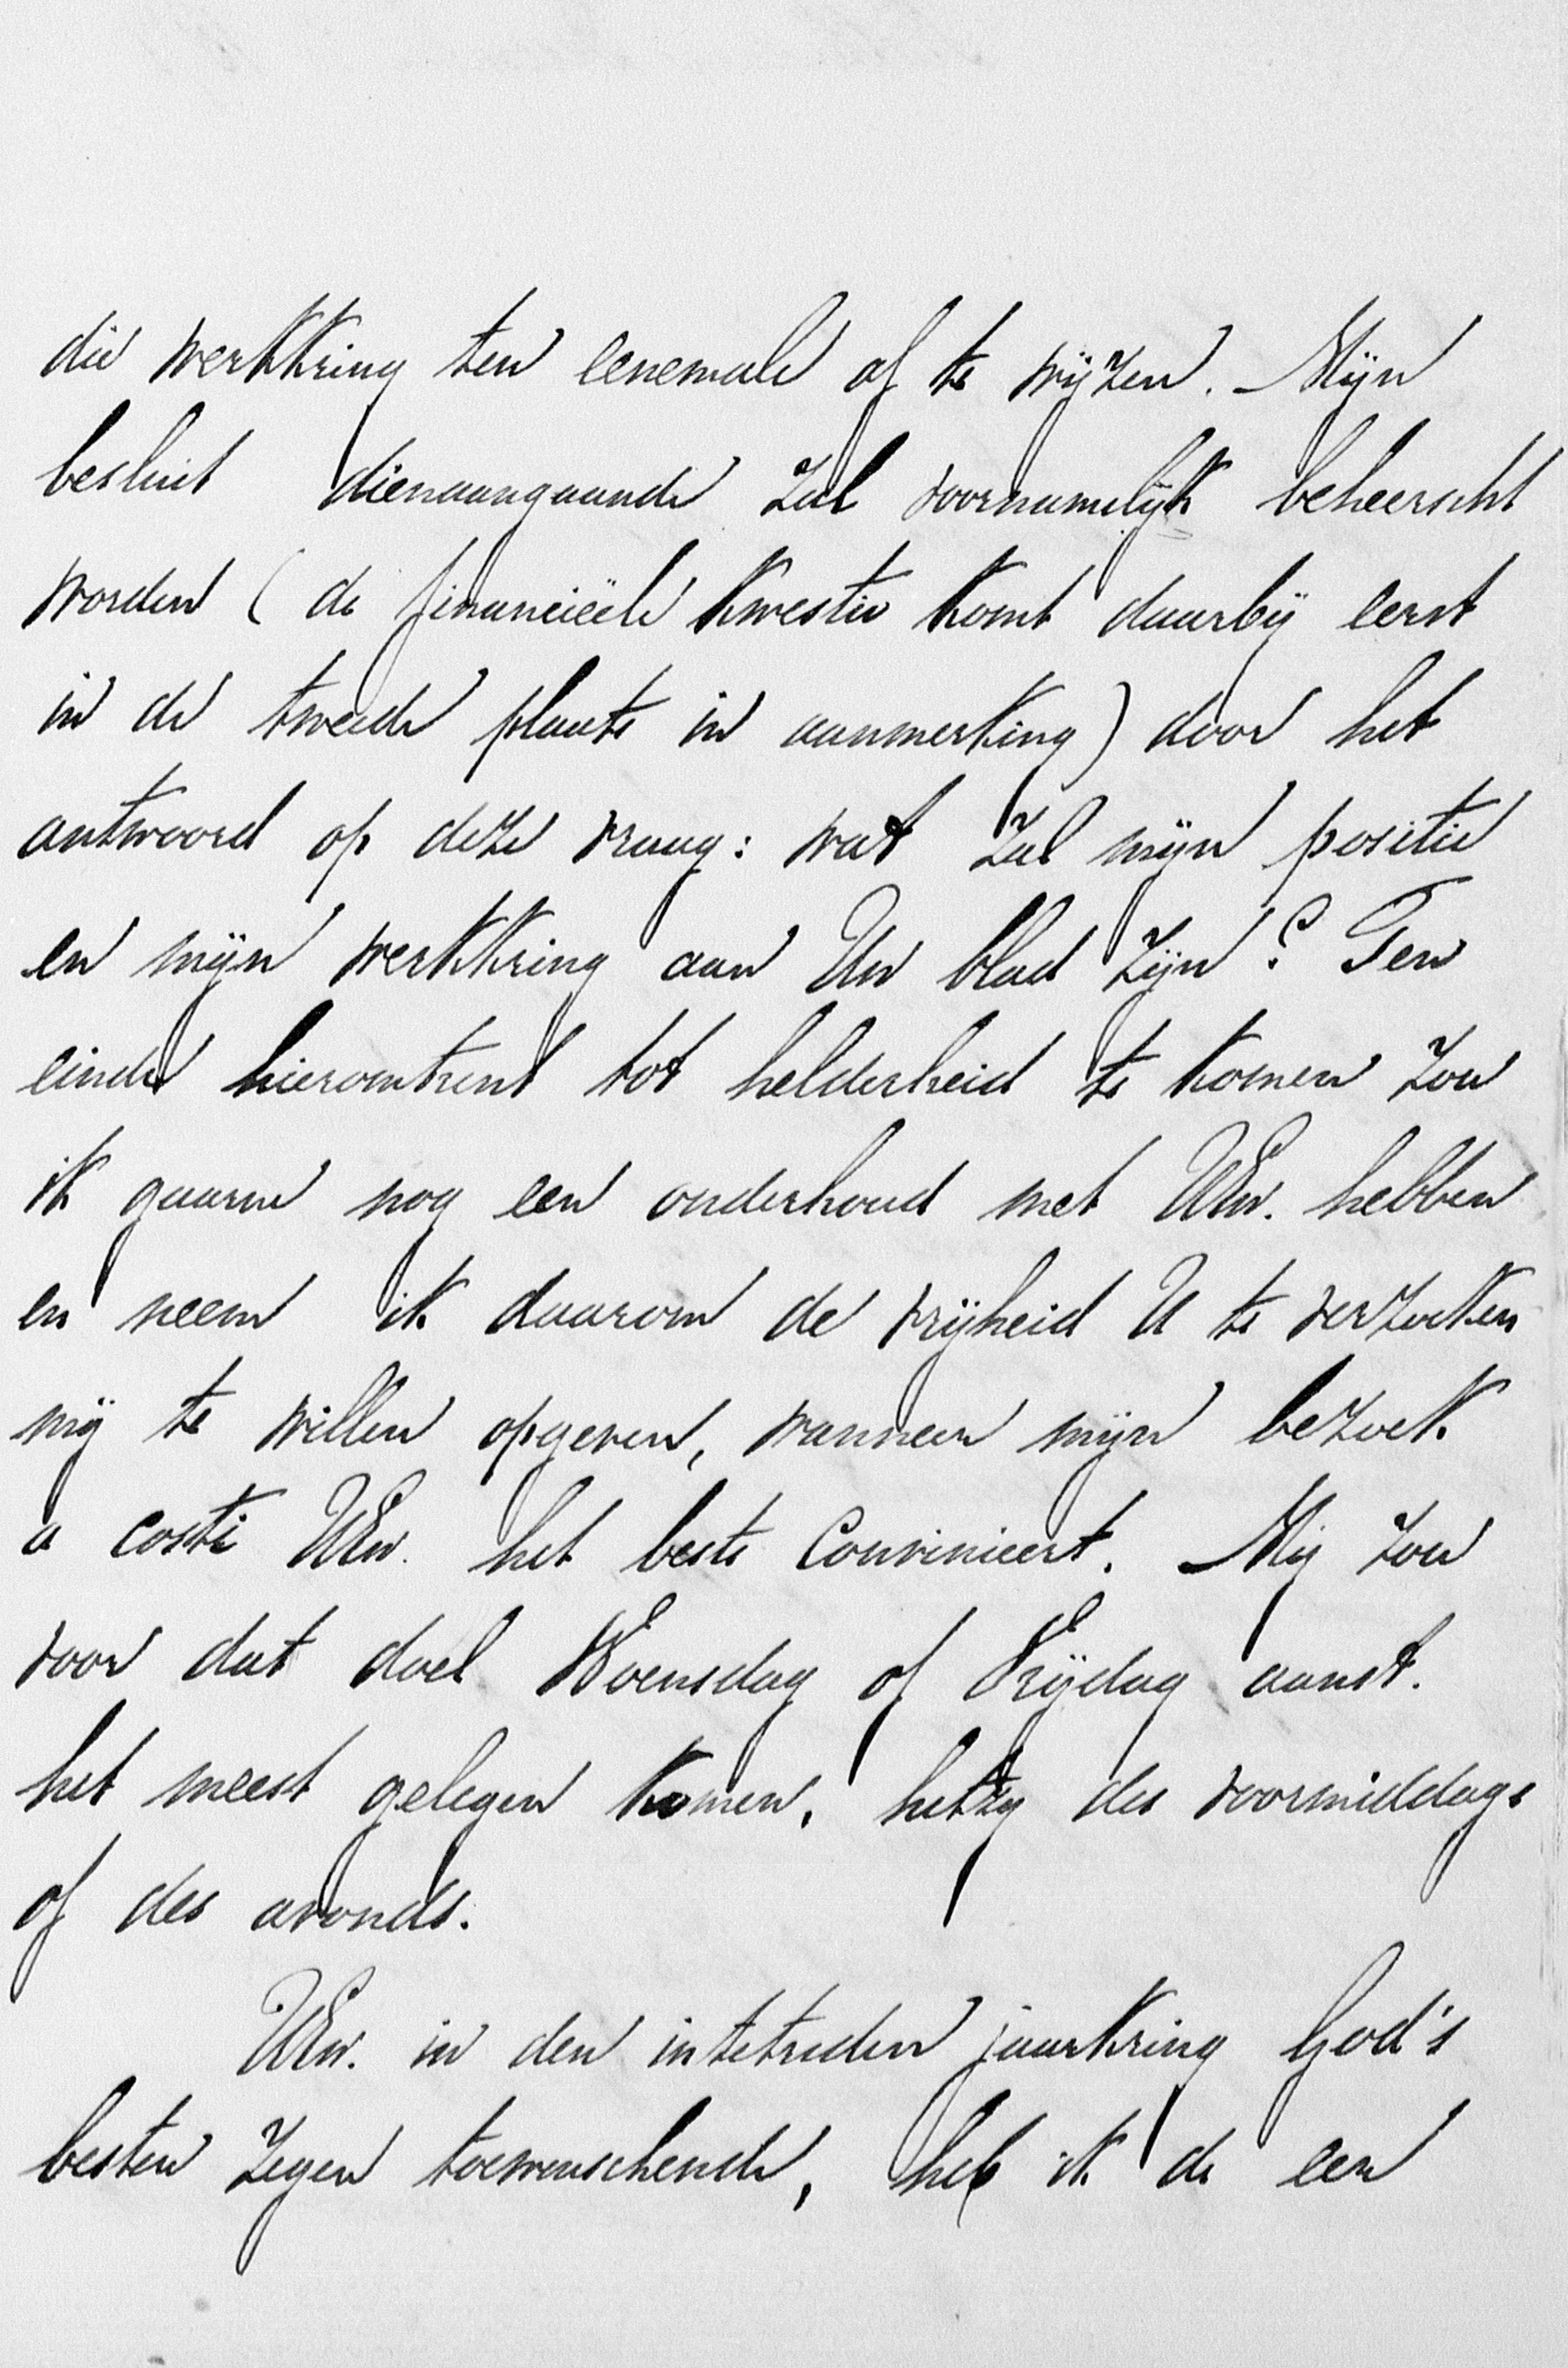 die werkkring ten eenemale af te wijzen. Mijn
besluit dienaangaande zal voornamelijk beheerscht
worden (de financieële kwestie komt daarbij eerst
in de tweede plaats in aanmerking) door het
antwoord op deze vraag: wat zal mijn positie
en mijn werkkring aan Uw blad zijn? Ten
einde hieromtrent tot helderheid te komen zou
ik gaarne nog een onderhoud met UEw. hebben
en neem ik daarom de vrijheid U te verzoeken
mij te willen opgeven, wanneer mijn bezoek
a costi UEw. het beste convenieert. Mij zou
voor dat doel Woensdag of Vrijdag aanst.
het meest gelegen komen, hetzij des voormiddags
of des avonds.
UEw. in den intetreden jaarkring God's
besten zegen toewenschende, heb ik de eer